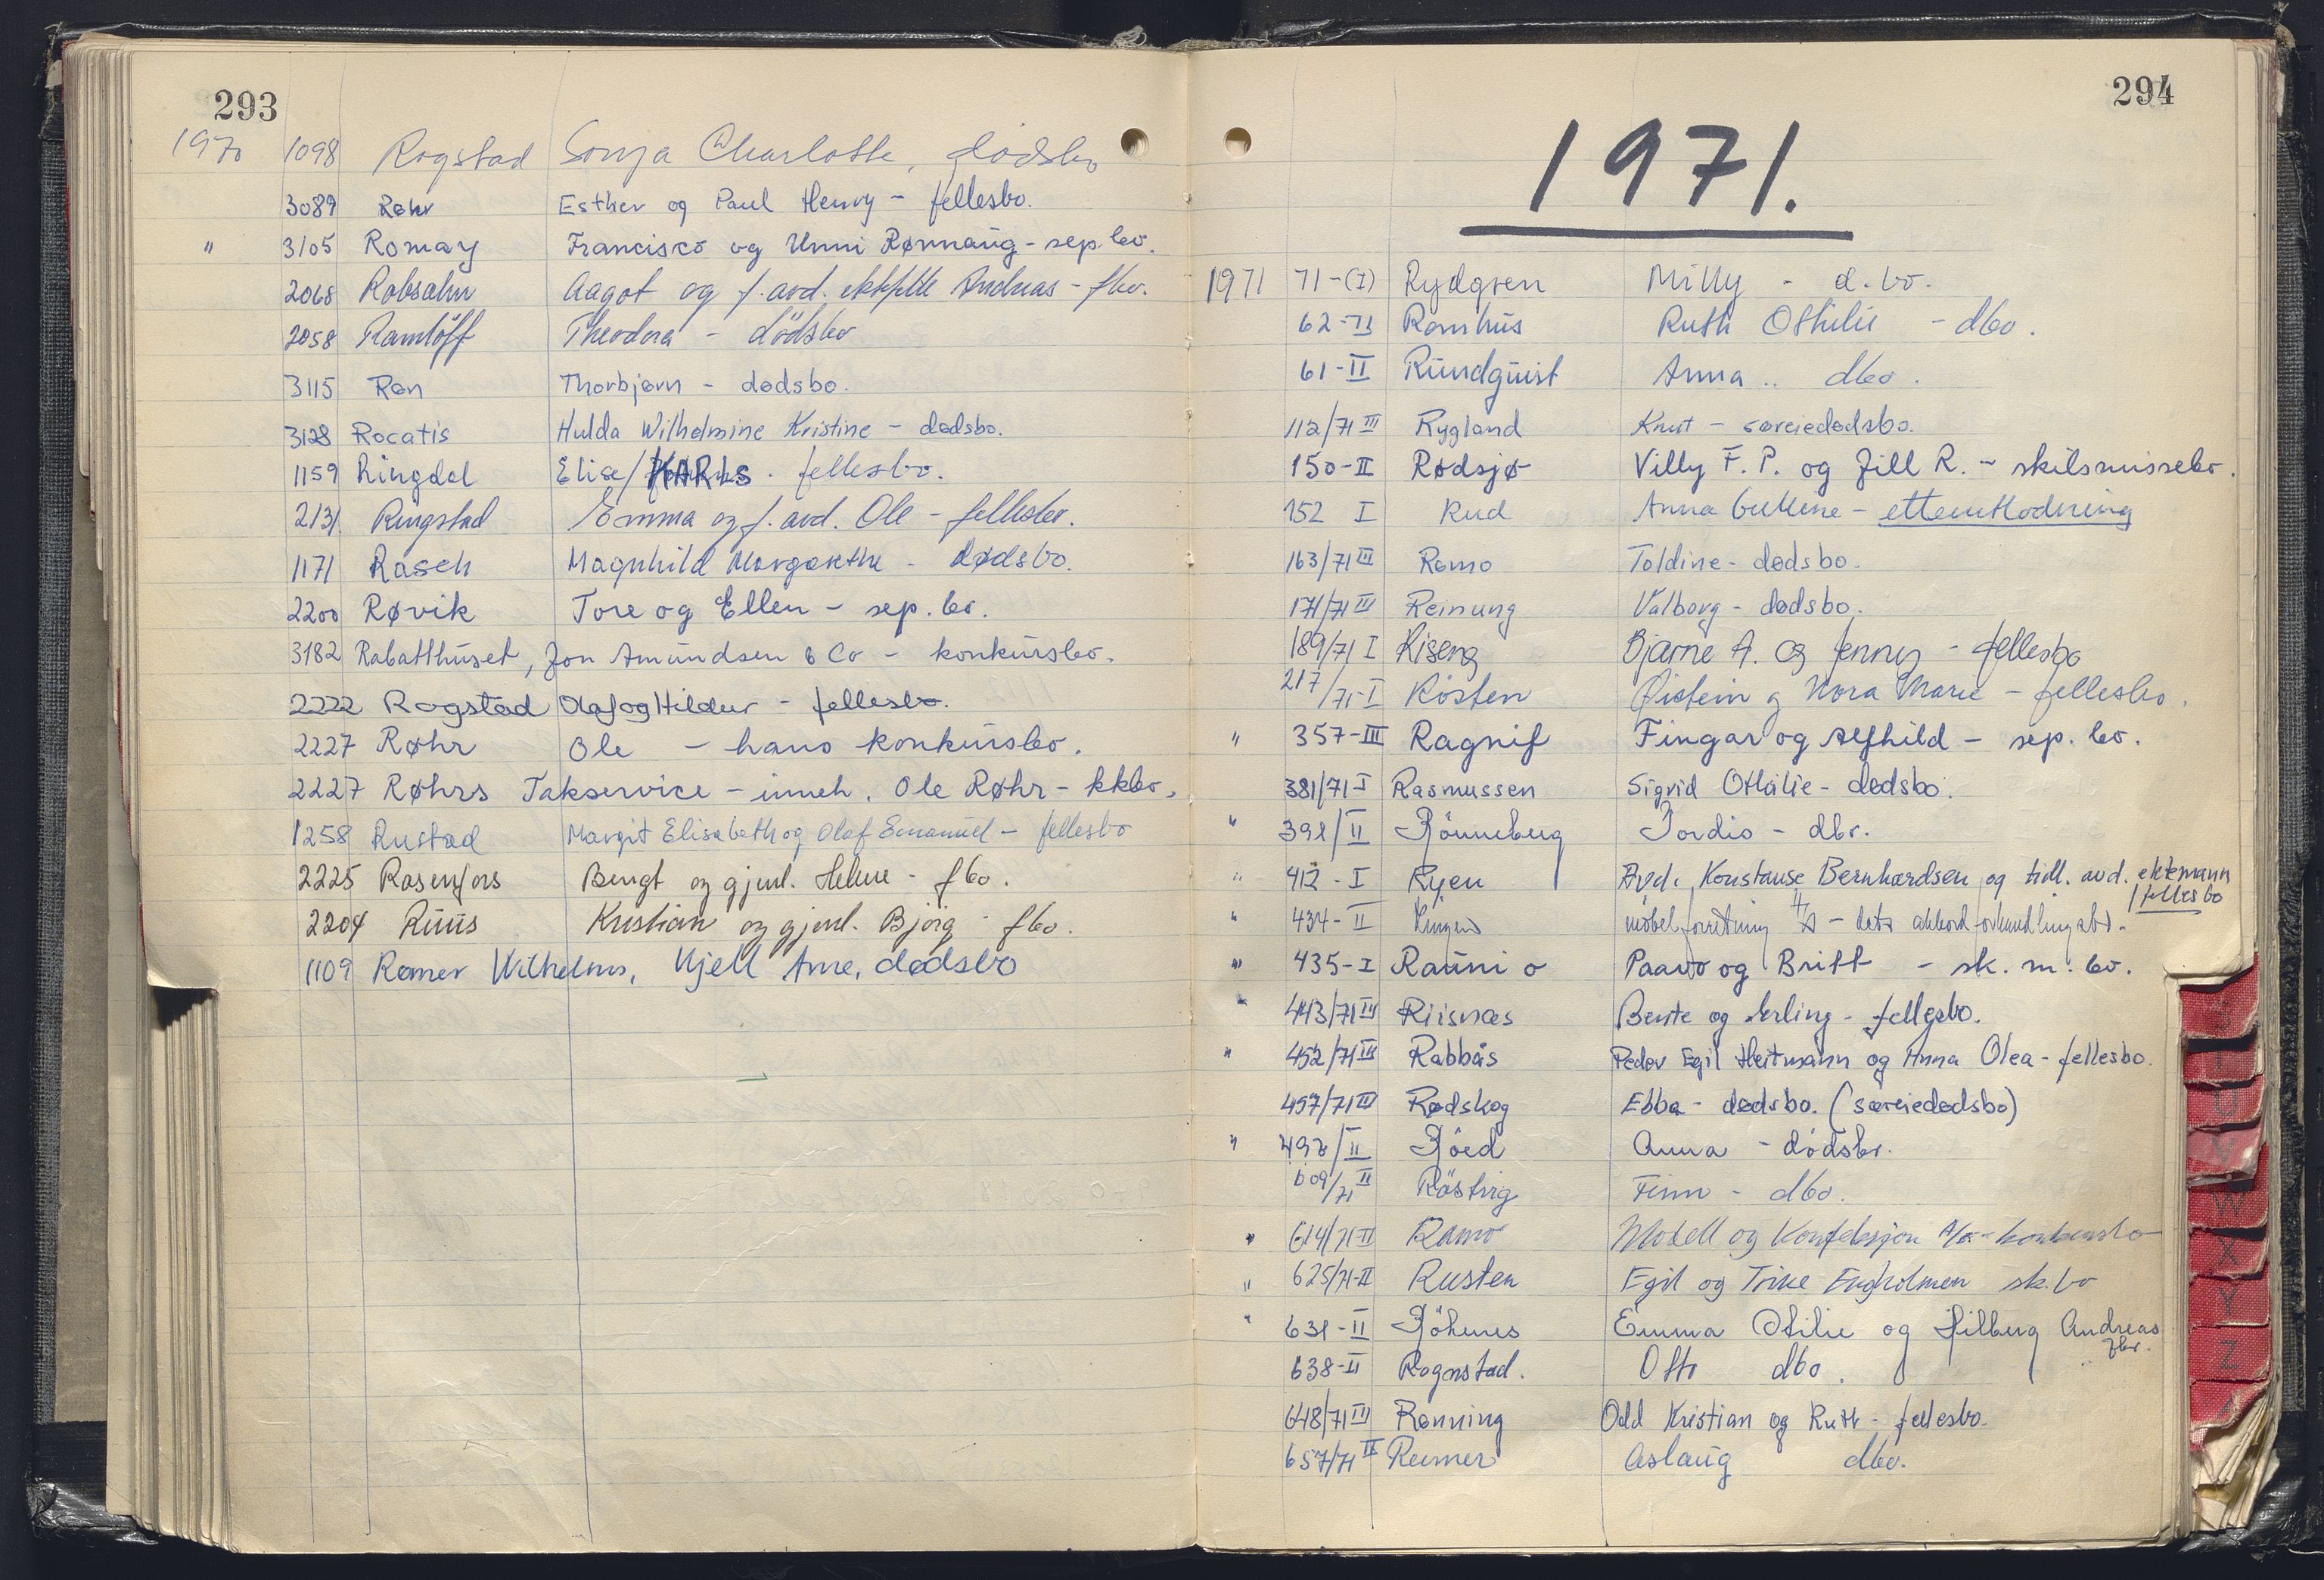 293
1970 1098 Rogstad Sonja Charlotte, dødsbo
3089 Røhr Esther og Paul Henry - fellesbo.
" 3105 Romay Francisco og Unni Rønnaug - sep. bo.
2068 Robsahm Aagot og f. avd. ektefelle Andreas - fbo.
2058 Ramlöff Theodora - dödsbo
3115 Røn Thorbjørn - dødsbo.
3128 Rocatis Hulda Wilhelmine Kristine - dødsbo.
1159 Ringdal Elise/ KARLS. fellesbo.
2131. Ringstad Emma og f. avd. Ole - fellesbo.
1171 Rasch Magnhild Margarethe - dødsbo.
2200 Røvik Tore og Ellen - sep. bo.
3182 Rabatthuset, Jon Amundsen & Co - konkursbo.
2222 Rogstad Olaf og Hildur - fellesbo.
2227 Røhr Ole - hans konkursbo.
2227 Røhrs Takservice - inneh. Ole Røhr - kkbo.
1258 Rustad Margit Elisabeth og Olaf Emanuel - fellesbo
2225 Rosenfors Bengt og gjenl. Helene - fbo.
2204 Ruus Kristian og gjenl. Bjørg - fbo.
1109 Rømer Wilhelms, Kjell Arne, dødsbo
294
1971.
1971 71-(I) Rydgren Milly - d. bo.
62-II Romhus Ruth Othilie - dbo.
61-II Rundquist Anna .. dbo.
112/71 III Rygland Knut - særeiedødsbo.
150-II Rødsjø Villy F. P. og Jill R. - skilsmissebo.
152 I Rud Anna - etterutlodning
163/71 III Romo Toldine - dødsbo.
171/71 III Reinung Valborg - dødsbo.
189/71 I Riseng Bjarne A. og Jenny - fellesbo
217/71-I Rosten Øistein og Nora Marie - fellesbo.
" 357-III Ragnif Fingar og Alfhild - sep. bo.
381/71 I Rasmussen Sigrid Othilie - dødsbo.
" 391/II Rönneberg Tordis - dbo.
" 412-I Ryen Avd. Konstanse Bernhardsen og tidl. avd. ektemann
/fellesbo
" 434-II Ringens møbelforretning A/S - dets akkordforhandlingsbo.
" 435-I Raunio Paavo og Britt - sk. m. bo.
" 443/71 III Riisnæs Bente og Erling - fellesbo.
" 452/71 III Rabbås Peder Egil Heitmann og Anna Olea - fellesbo.
497/71 III Rødskog Ebba - dødsbo. (særeiedødsbo)
" 498/II Röed Anna - dödsbo.
609/71 II Röstvig Finn - dbo.
" 614/71-II Ramo Modell og Konfeksjon A/S - konkursbo
" 625/71-II Rusten Egil og Trine Engholmen sk. bo
" 631-II Röhnes Emma Otilie og Hilberg Andreas
fbo.
638-II Rogenstad. Otto dbo.
648/71 III Rønning Odd Kristian og Ruth - fellesbo.
657/71 II Reimer Aslaug dbo.
T
U
V
W
X
Y
Z